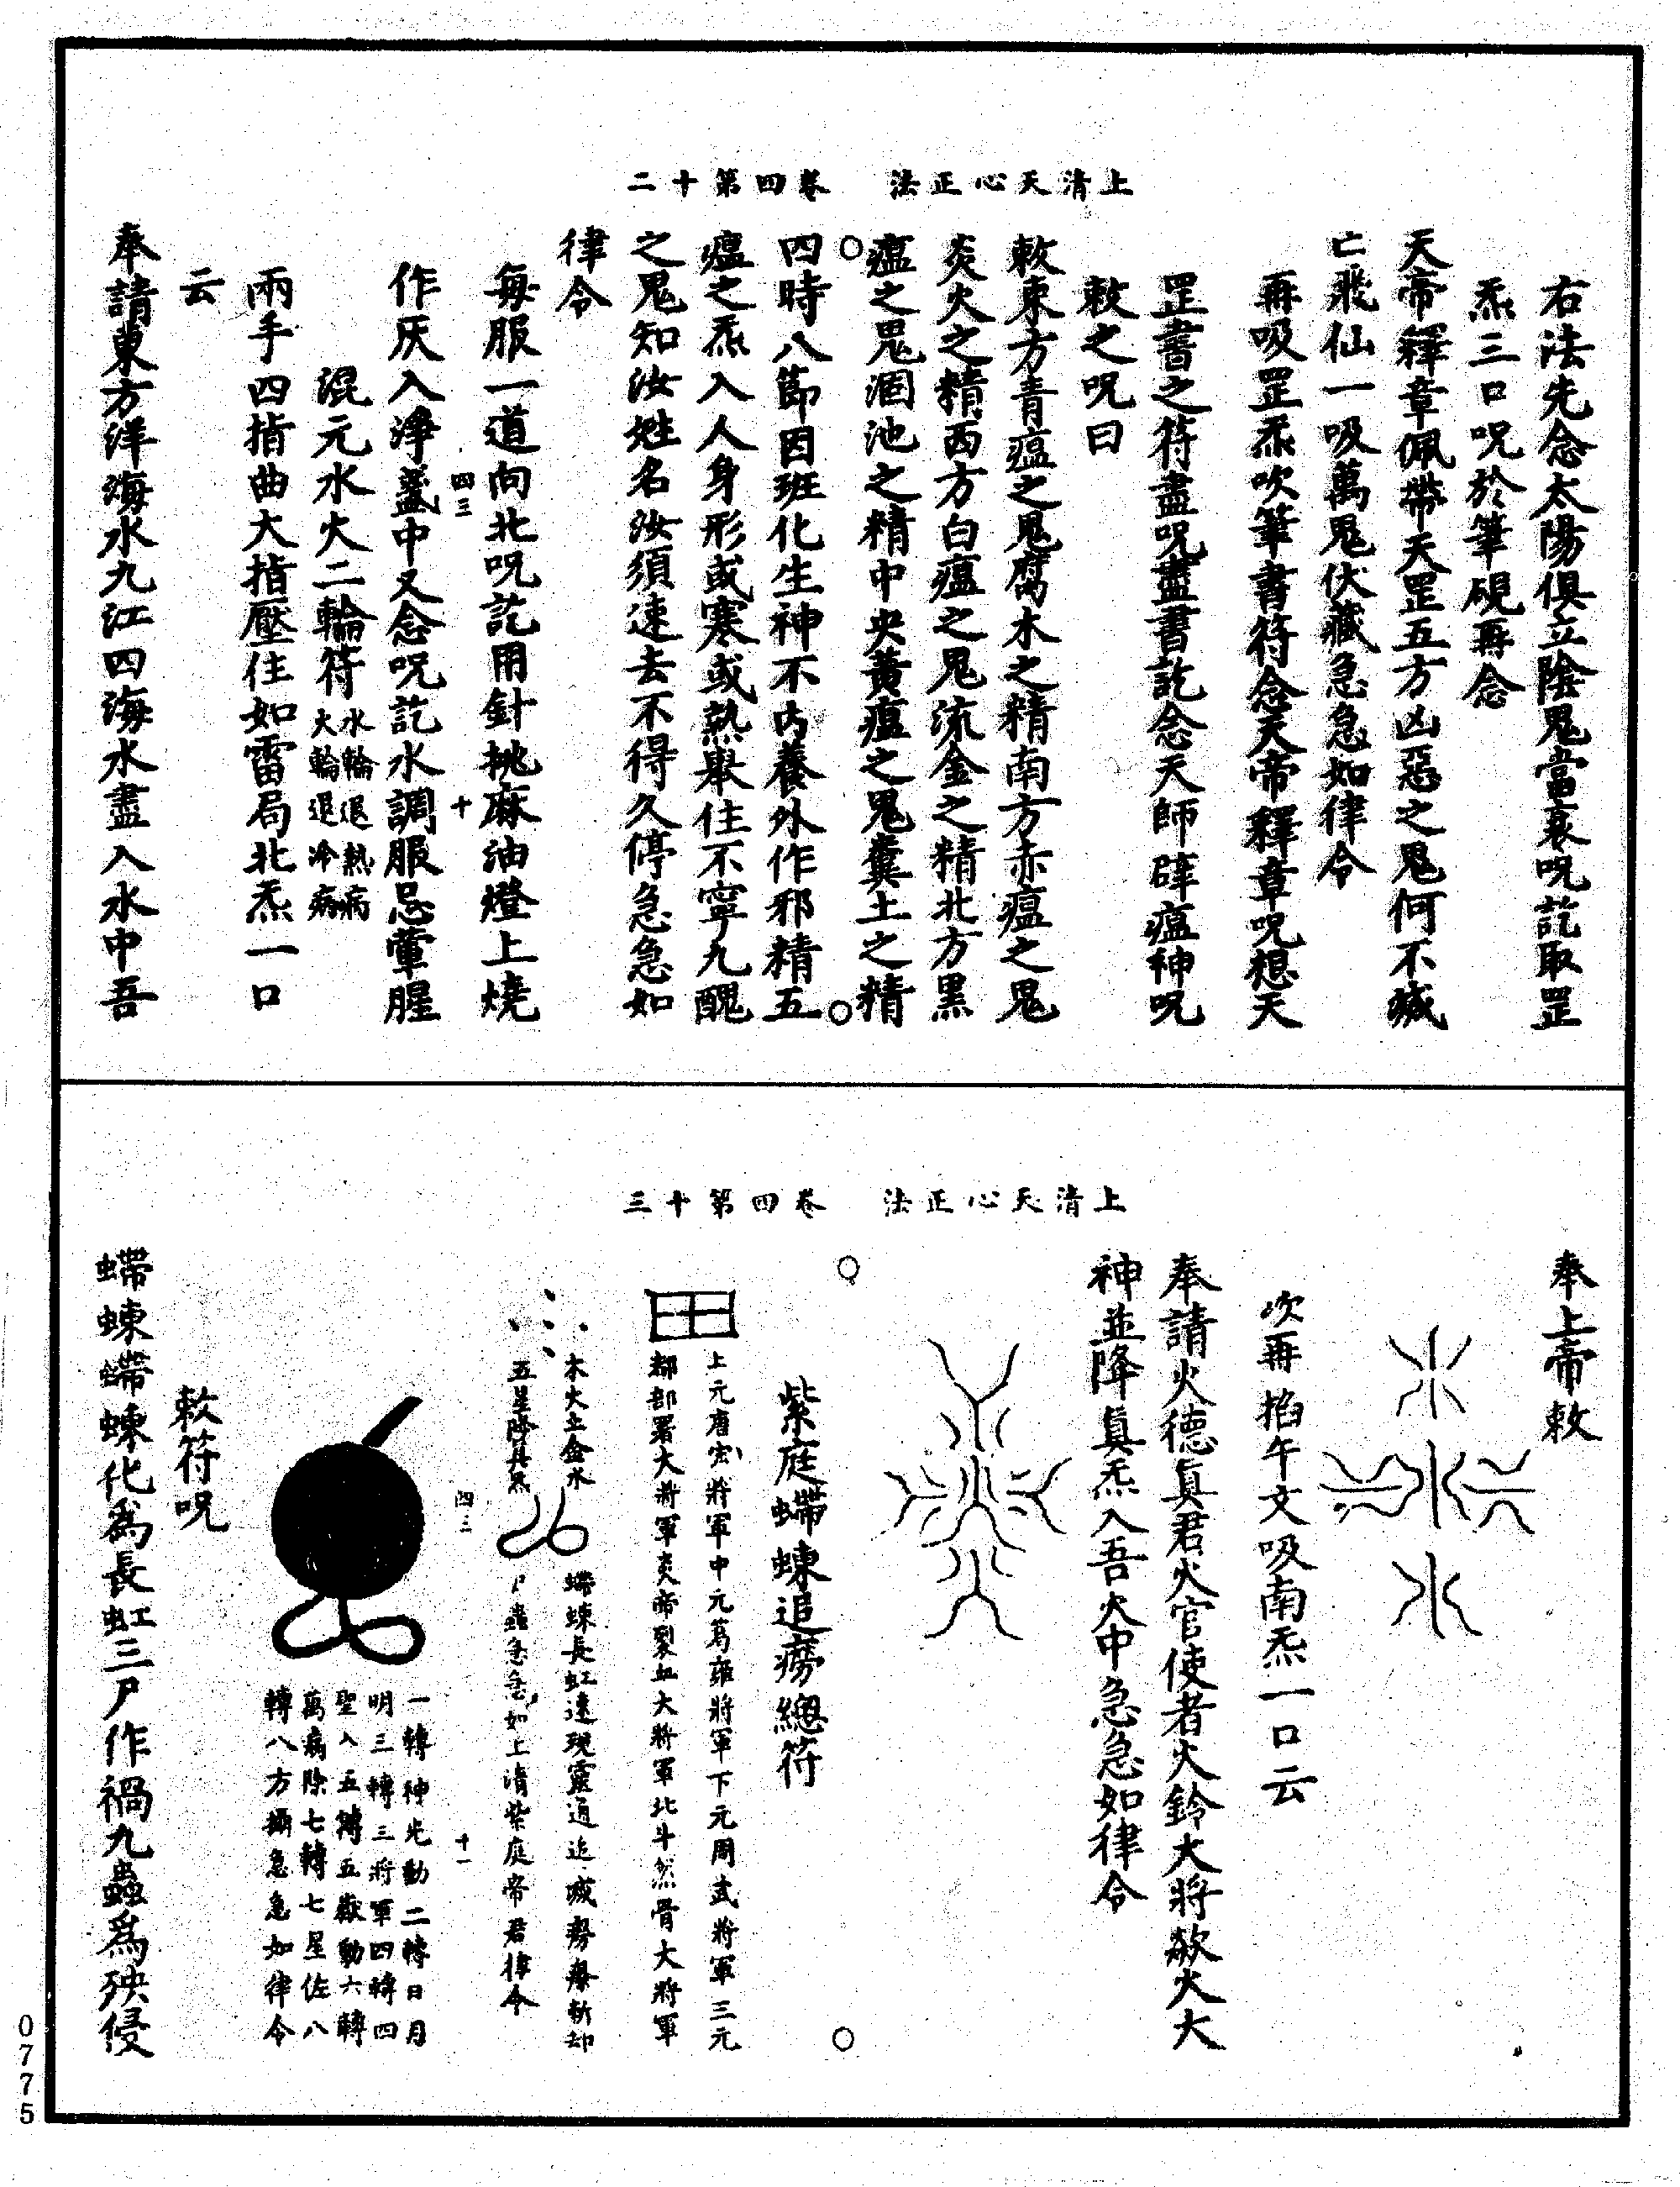 上清天心正法　卷四第十二
右法先念太陽俱立陰鬼當衰呪訖取罡
炁三口呪於筆硯再念
天帝釋章佩帶天罡五方凶惡之鬼何不滅
亡飛仙一吸萬鬼伏藏急急如律令
再吸罡炁吹筆書符念天帝釋章呪想天
罡書之符盡呪盡書訖念天師辟瘟神呪
敕之呪曰
敕東方青瘟之鬼腐木之精南方赤瘟之鬼
炎火之精西方白瘟之鬼流金之精北方黑
瘟之鬼溷池之精中央黃瘟之鬼糞土之精
四時八節因班化生神不內養外作邪精五
瘟之炁入人身形或寒或熱舉住不寧九醜
之鬼知汝姓名汝須速去不得久停急急如
律令
每服一道向北呪訖用針挑麻油燈上燒
四三　十
作灰入淨盞中又念呪訖水調服忌葷腥
混元水火二輪符
水輪退熱病
火輪退冷病
兩手四指曲大指壓住如雷局北炁一口
云
奉請東方洋海水九江四海水盡入水中吾
上清天心正法　卷四第十三
奉上帝敕
吹再掐午文吸南炁一口云
奉請火德真君火官使者火鈴大將欻火大
神並降真炁入吾火中急急如律令
紫庭蝃蝀追癆總符
上元唐宏將軍中元葛雍將軍下元周武將軍三元
都部署大將軍炎帝裂血大將軍北斗然骨大將軍
木火土金水
五星降真炁
蝃蝀長虹速現靈通追滅癆瘵斬却
尸蟲急急如上清紫庭帝君律令
四三　十一
一轉神光動二轉日月
明三轉三將軍四轉四
聖入五轉五嶽動六轉
萬病除七轉七星佐八
轉八方攝急急如律令
敕符呪
蝃蝀蝃蝀化為長虹三尸作禍九蟲為殃侵
0775